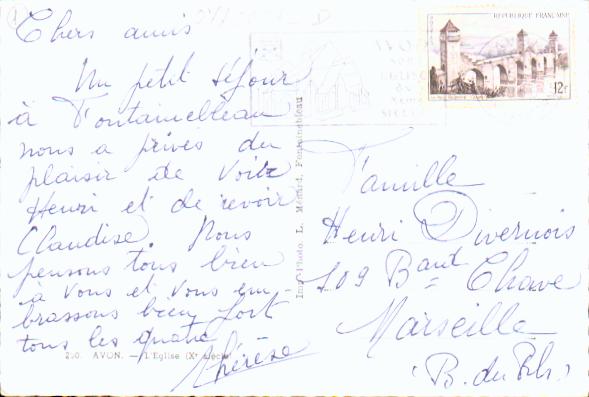 Chers amis
Un petit séjour
à Fontainebleau
nous a privés du
plaisir de voir
Henri et de revoir
Claudise. Nous
pensons tous bien
à vous et vous em-
brassons bien fort
tous les quatre
Thérèse
250. AVON. — L'Eglise (Xe siècle)
Imp. Photo. L. Ménard, Fontainebleau
REPUBLIQUE FRANÇAISE
12F
Famille
Henri Divernois
109 Bard Chave
Marseille
(B. du Rh.)